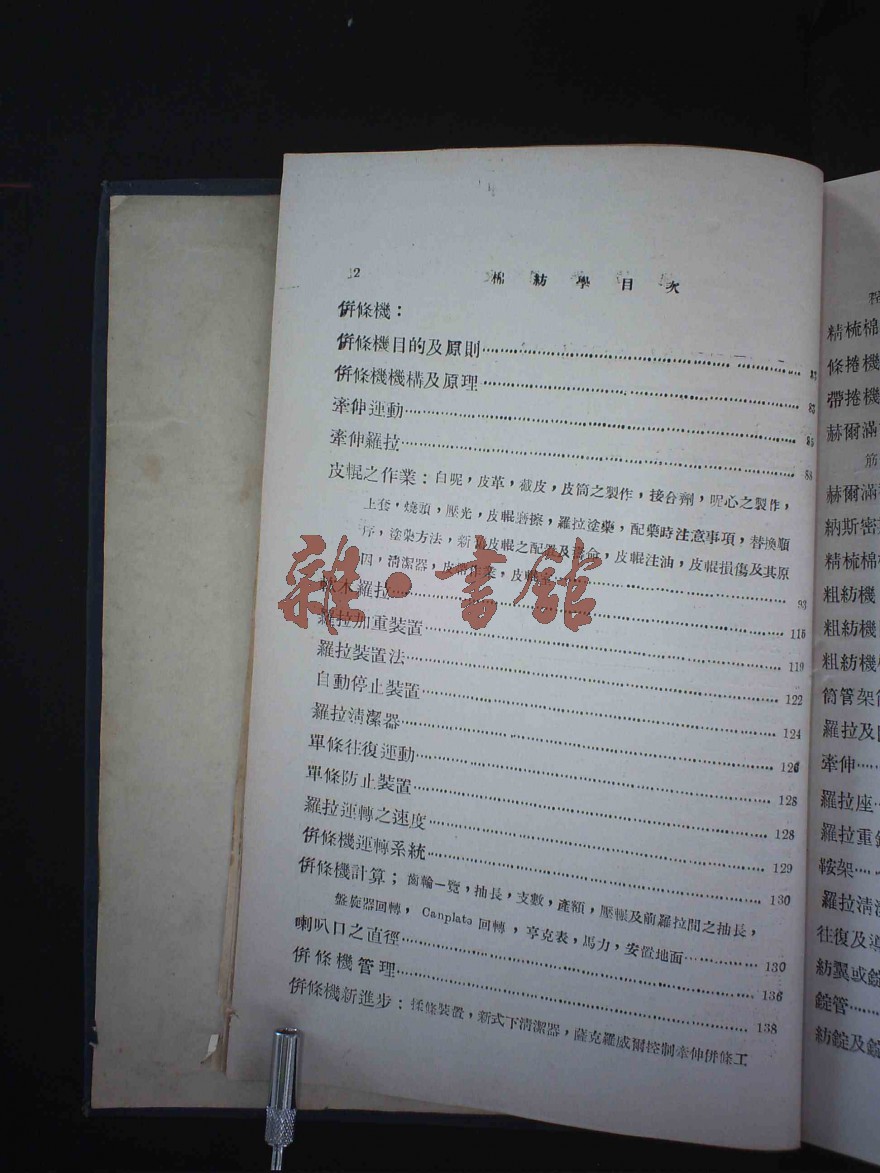 2 棉紡學目次
併條機：
併條機目的及原則
併條機機構及原理 83
牽伸運動
牽伸羅拉 88
皮輥之作業：白呢，皮革，截皮，皮筒之製作，接合劑，呢心之製作，
上套，燒頭，壓光，皮輥磨擦，羅拉塗藥，配藥時注意事項，替換順
序，塗藥方法，新舊皮輥之配置及壽命，皮輥注油，皮輥損傷及其原
因，清潔器，皮帶作業，皮輥 93
軟木羅拉 115
羅拉加重裝置 119
羅拉裝置法 122
自動停止裝置 124
羅拉清潔器 126
單條往復運動 128
單條防止裝置 128
羅拉運轉之速度 129
併條機運轉系統 130
併條機計算；齒輪一覽，抽長，支數，產額，壓輥及前羅拉間之抽長，
盤旋器回轉，Canplate 回轉，亨克表，馬力，安置地面 130
喇叭口之直徑 136
併條機管理 138
併條機新進步：揉條裝置，新式下清潔器，薩克羅威爾控制牽伸併條工
精梳棉
條捲機
帶捲機
赫爾滿
筋
赫爾滿
納斯密
精梳棉
粗紡機
粗紡機
粗紡機
筒管架
羅拉及
牽伸
羅拉座
羅拉重
鞍架
羅拉清
往復及
紡翼或錠
錠管
紡錠及錠
雜·書館